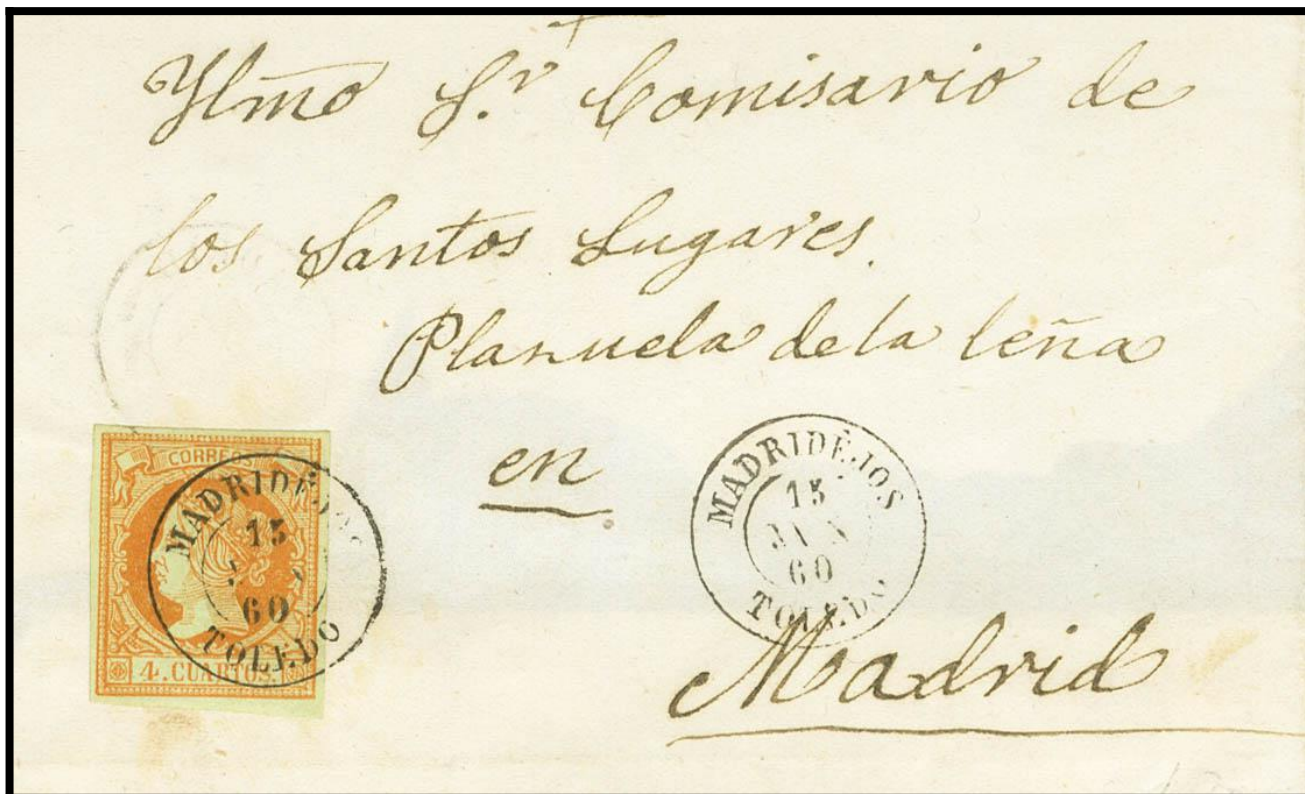 Ylmo S.r Comisario de
los Santos Lugares.
Plazuela de la leña
en
Madrid
CORREOS
4. CUARTOS.
MADRIDEJOS
15
60
TOLEDO
MADRIDEJOS
15
60
TOLEDO